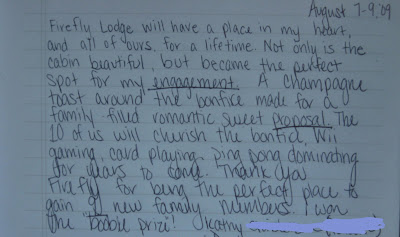 August 7-9, '09
Firefly Lodge will have a place in my heart,
and all of ours, for a lifetime. Not only is the
cabin beautiful, but became the perfect
spot for my engagement. A champagne
toast around the bonfire made for a
family-filled romantic sweet proposal. The
10 of us will cherish the bonfire, Wii
gaming, card playing, ping pong dominating
for years to come. Thank you
Firefly for being the perfect place to
gain 9 new family members. I won
the boobie prize! Kathy